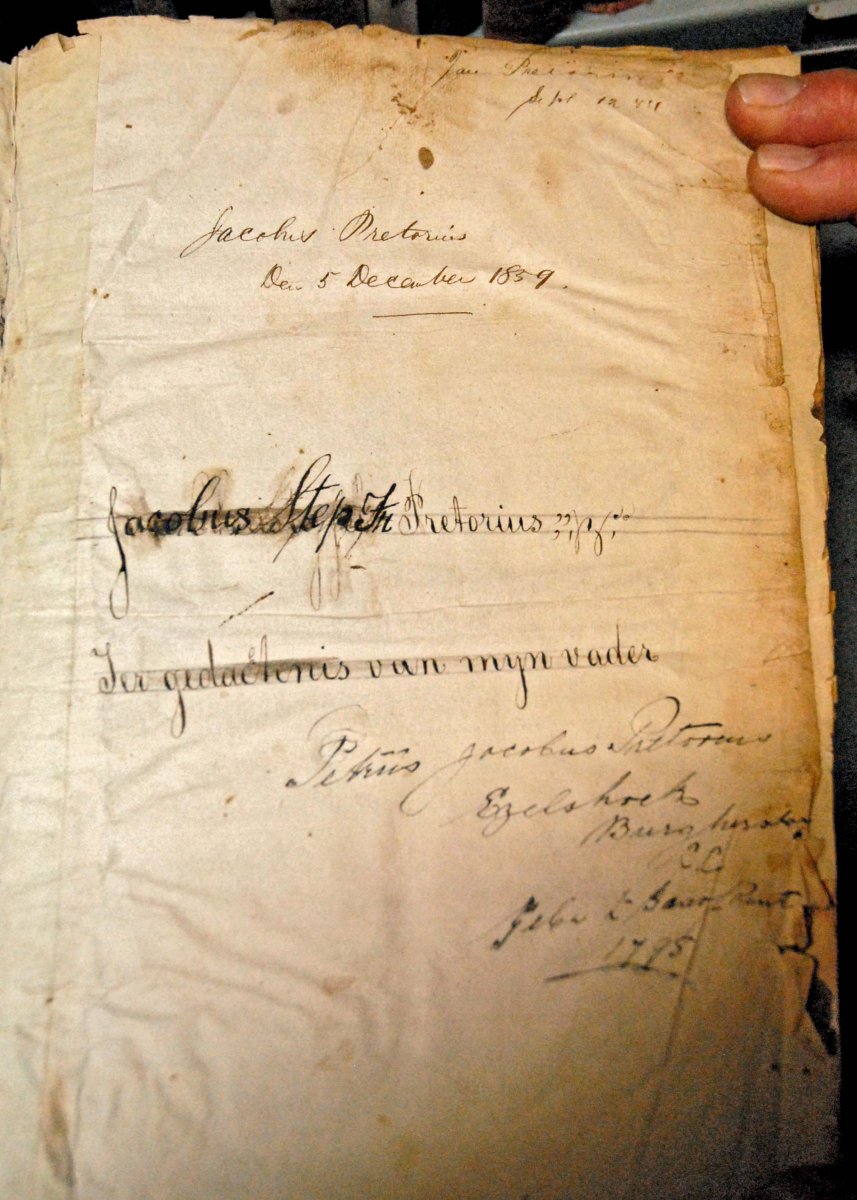 Jan Pretorius
Sept 12
Jacobus Pretorius
Den 5 December 1859.
Jacobus Step Fk Pretorius
Ter gedactenis van myn vader
Petrus Jacobus Pretorius
Ezelshoek
Burghersdorp
CC
Gebn
1795